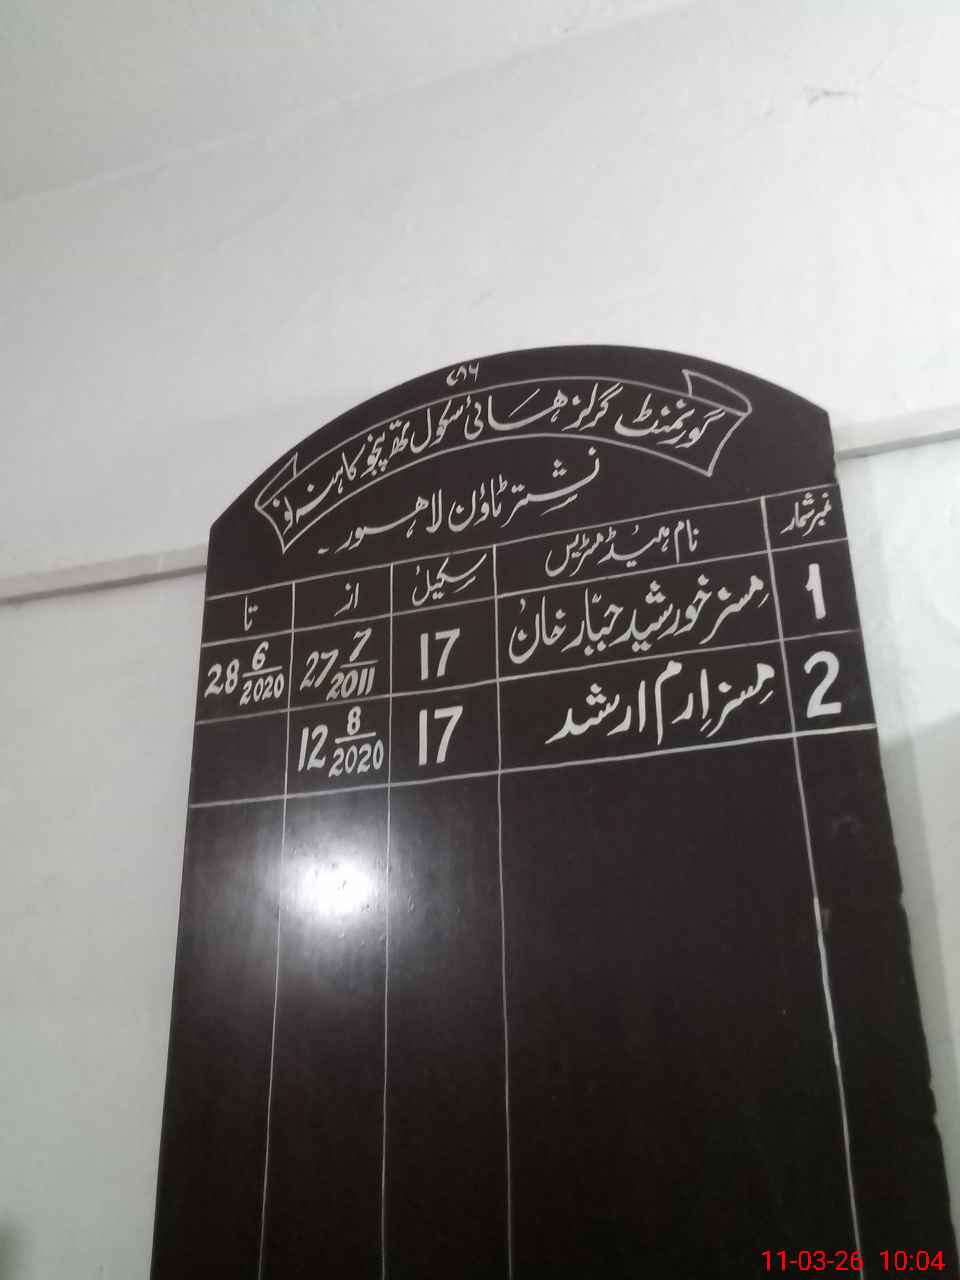 ۷۸۶
گورنمنٹ گرلز ہائی سکول تھہ پنجو کاہنہ نو
نشتر ٹاؤن لاہور۔
نمبر شمار نام ہیڈ مسٹریس سکیل از تا
1 مسز خورشید جبّار خان 17 27 7/2011 28 6/2020
2 مسز اِرم ارشد 17 12 8/2020
11-03-26 10:04